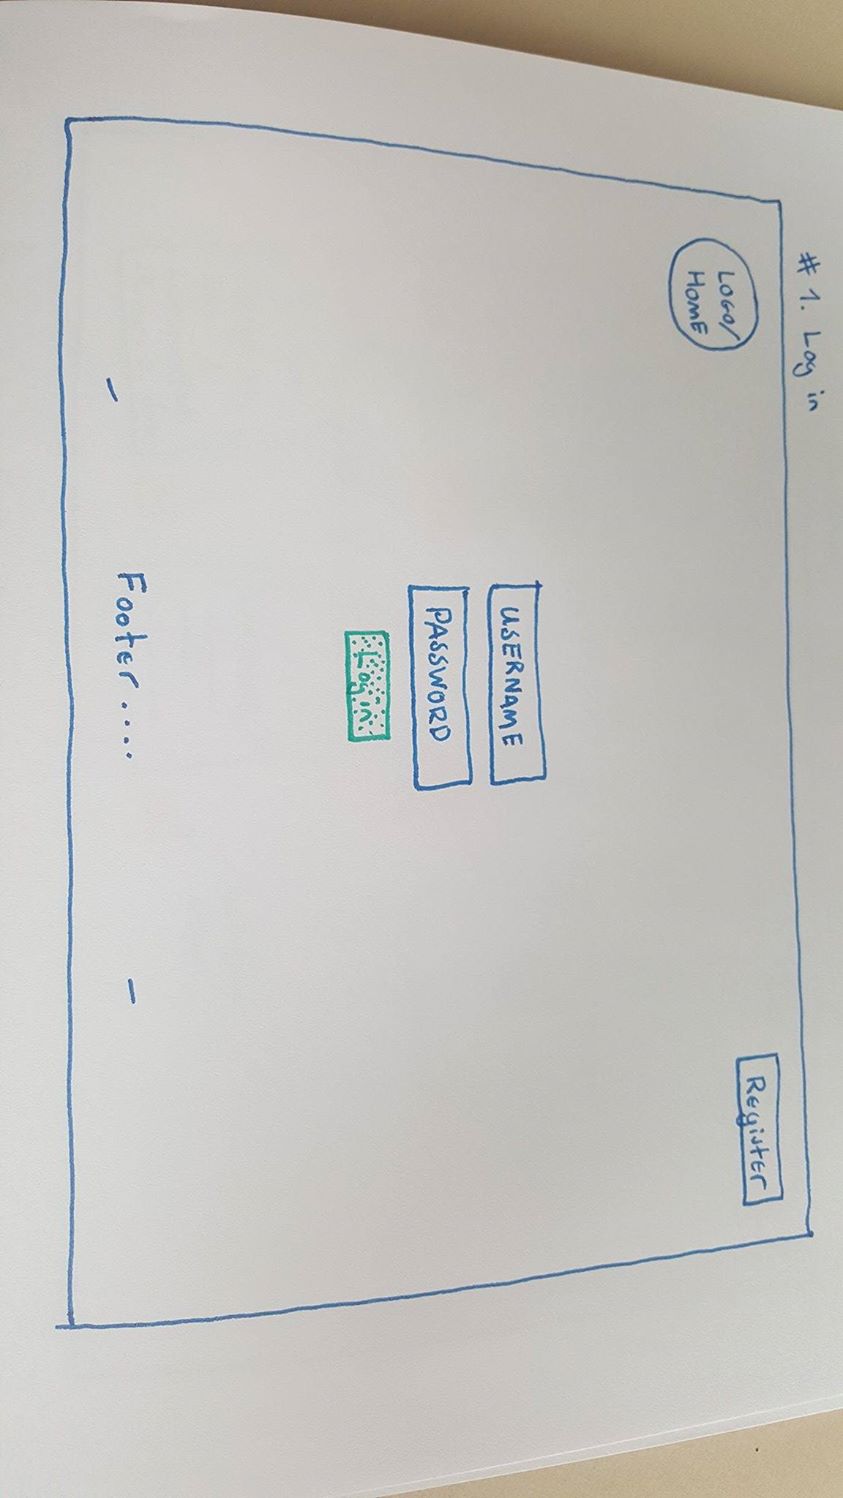 # 1. Log in
LOGO/
HOME
Register
USERNAME
PASSWORD
Log in
- Footer.... -